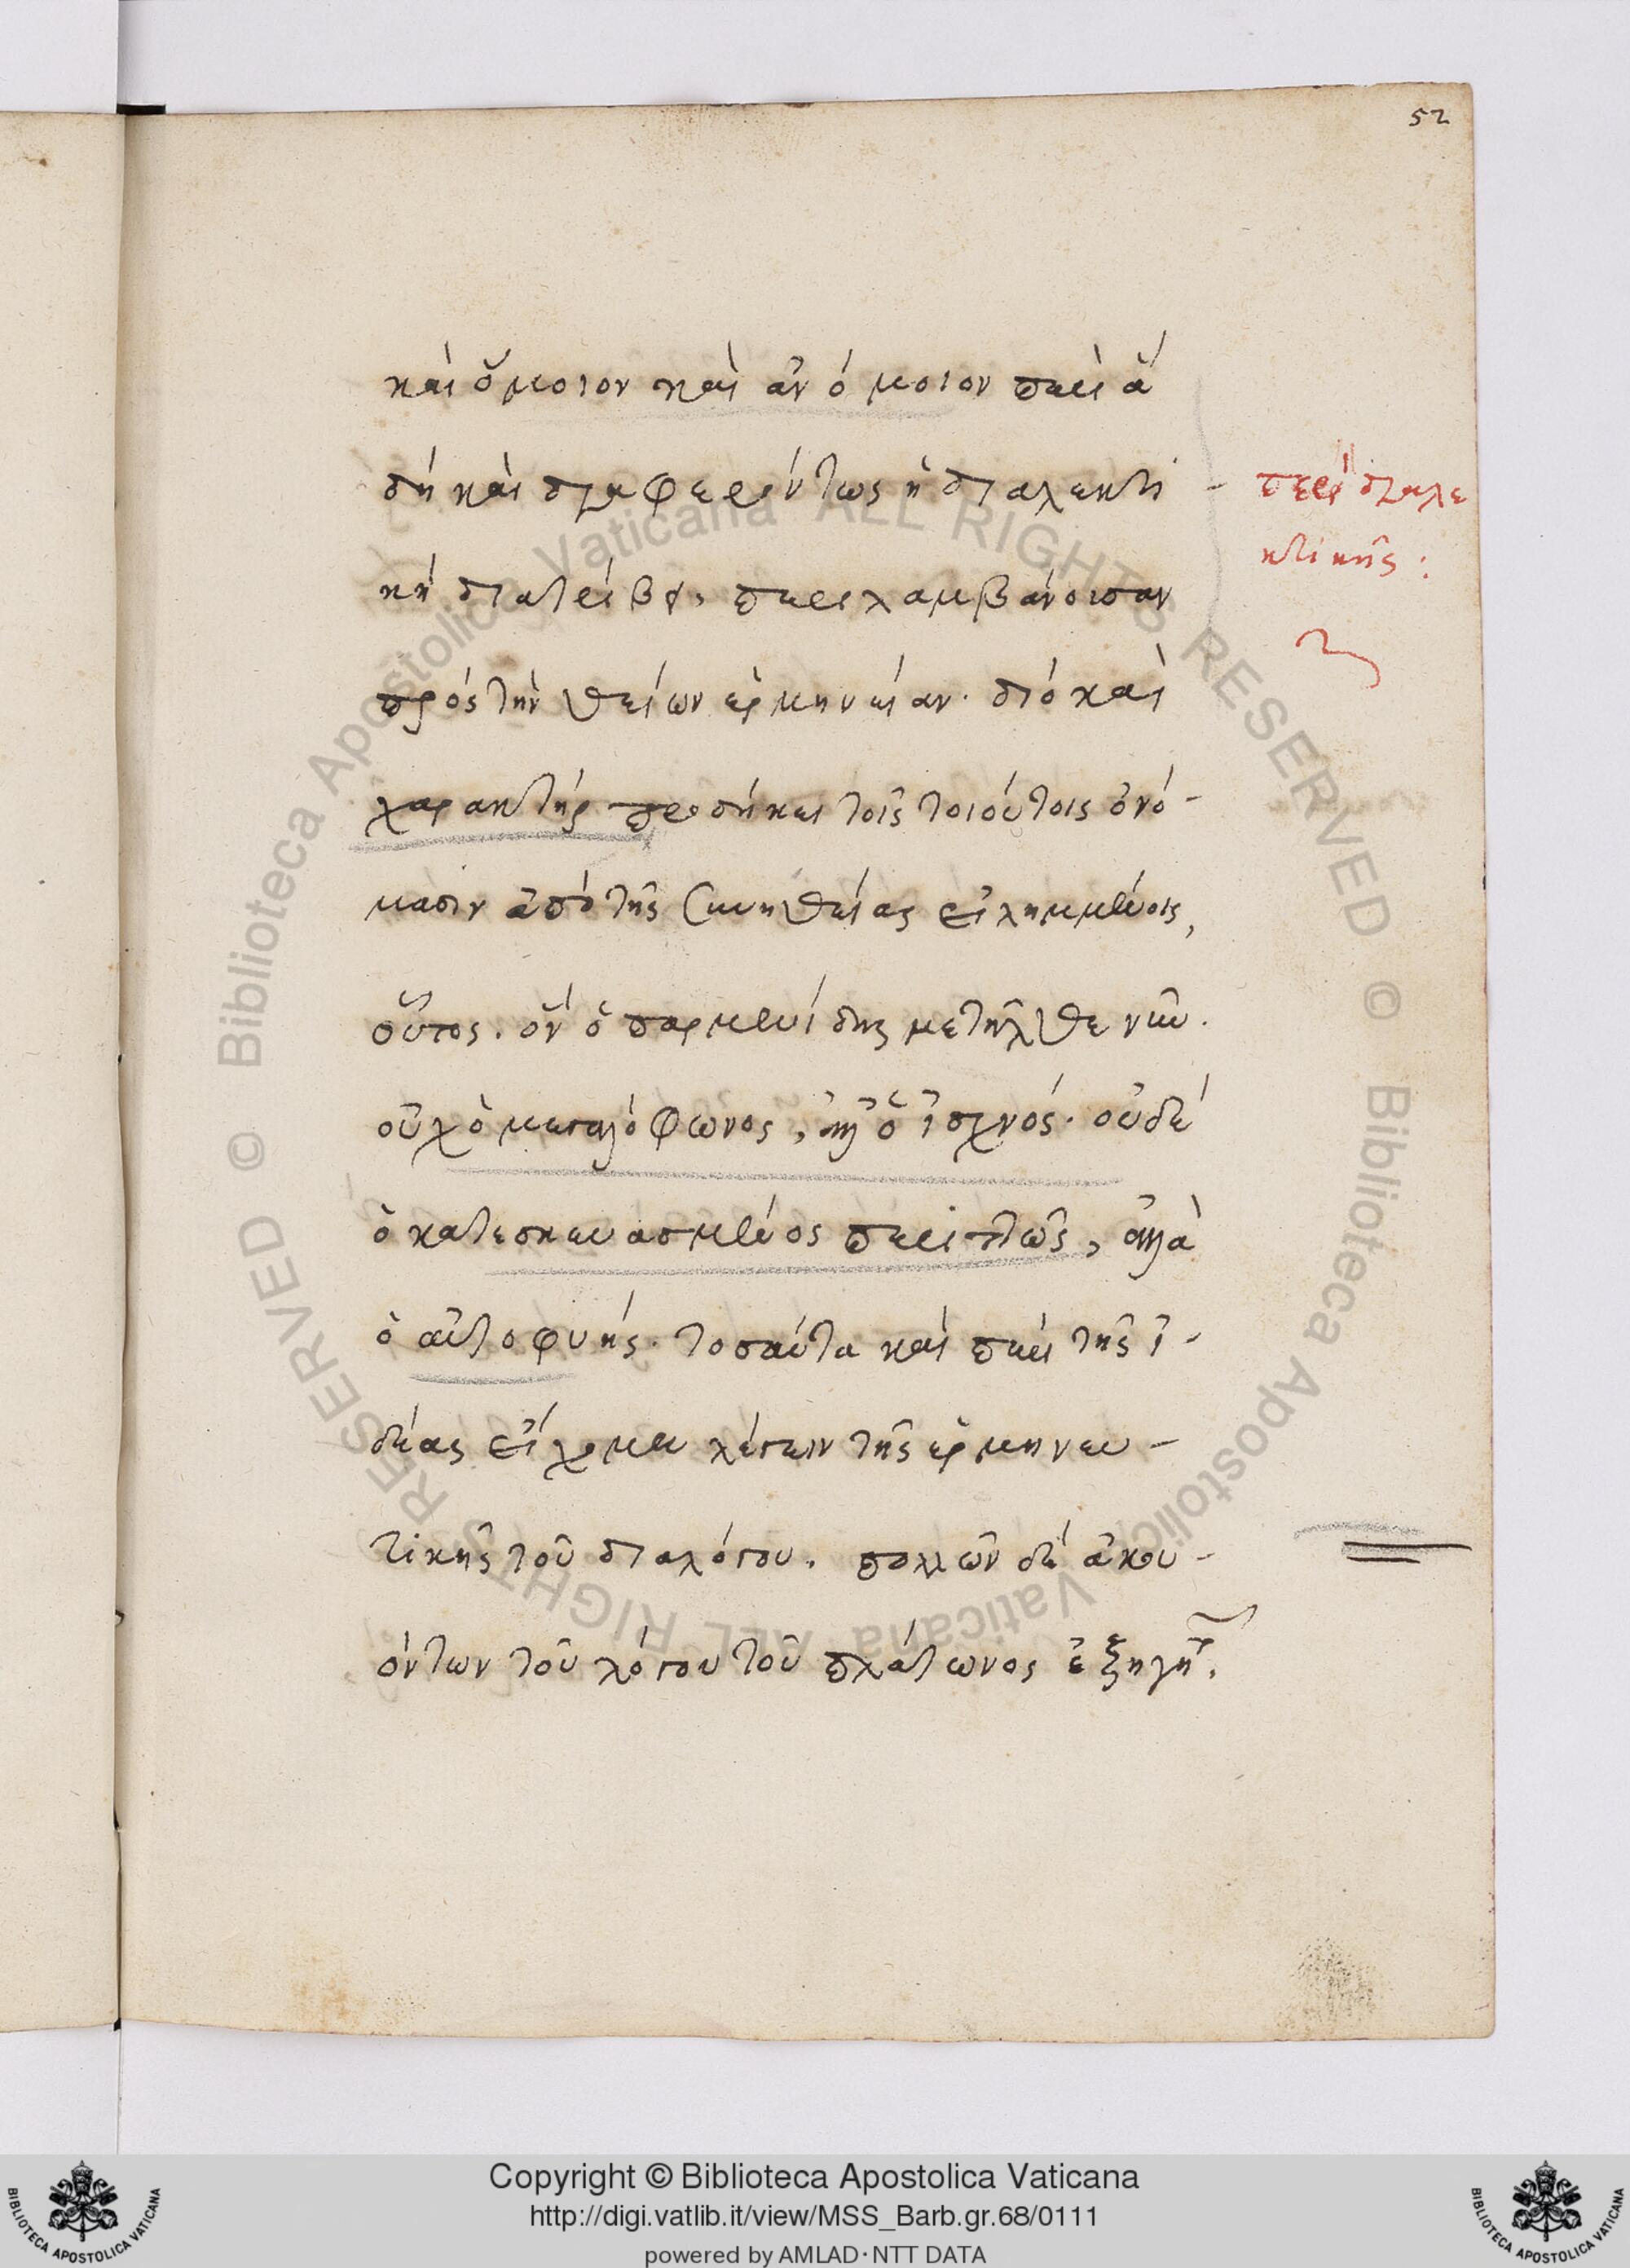 52
καὶ ὅμοιον καὶ ἀνόμοιον περὶ ἃ
δὴ καὶ διαφερόντως ἡ διαλεκτι
κὴ διατρίβει, παραλαμβάνουσαν
πρὸς τὴν θείων ἑρμηνείαν. διὸ καὶ
χαρακτὴρ προσήκει τοῖς τοιούτοις ὀνό-
μασιν ἀπὸ τῆς συνηθείας εἰλημμένοις,
οὗτος. ὃν ὁ παρμενίδης μετῆλθε νῦν.
οὐχ ὁ μεγαλόφωνος, ἀλλ' ὁ ἰσχνός. οὐδὲ
ὁ κατεσκευασμένος περιττῶς, ἀλλὰ
ὁ αὐτοφυής. τοσαῦτα καὶ περὶ τῆς ἰ-
δέας εἴχομεν λέγειν τῆς ἑρμηνευ-
τικῆς τοῦ διαλόγου. πολλῶν δὲ ἀκου-
όντων τοῦ λόγου τοῦ πλάτωνος
περὶ διαλε
κτικῆς:
Copyright © Biblioteca Apostolica Vaticana
http://digi.vatlib.it/view/MSS_Barb.gr.68/0111
powered by AMLAD·NTT DATA
BIBLIOTECA APOSTOLICA VATICANA
BIBLIOTECA APOSTOLICA VATICANA
© Biblioteca Apostolica Vaticana ALL RIGHTS RESERVED
© Biblioteca Apostolica Vaticana ALL RIGHTS RESERVED